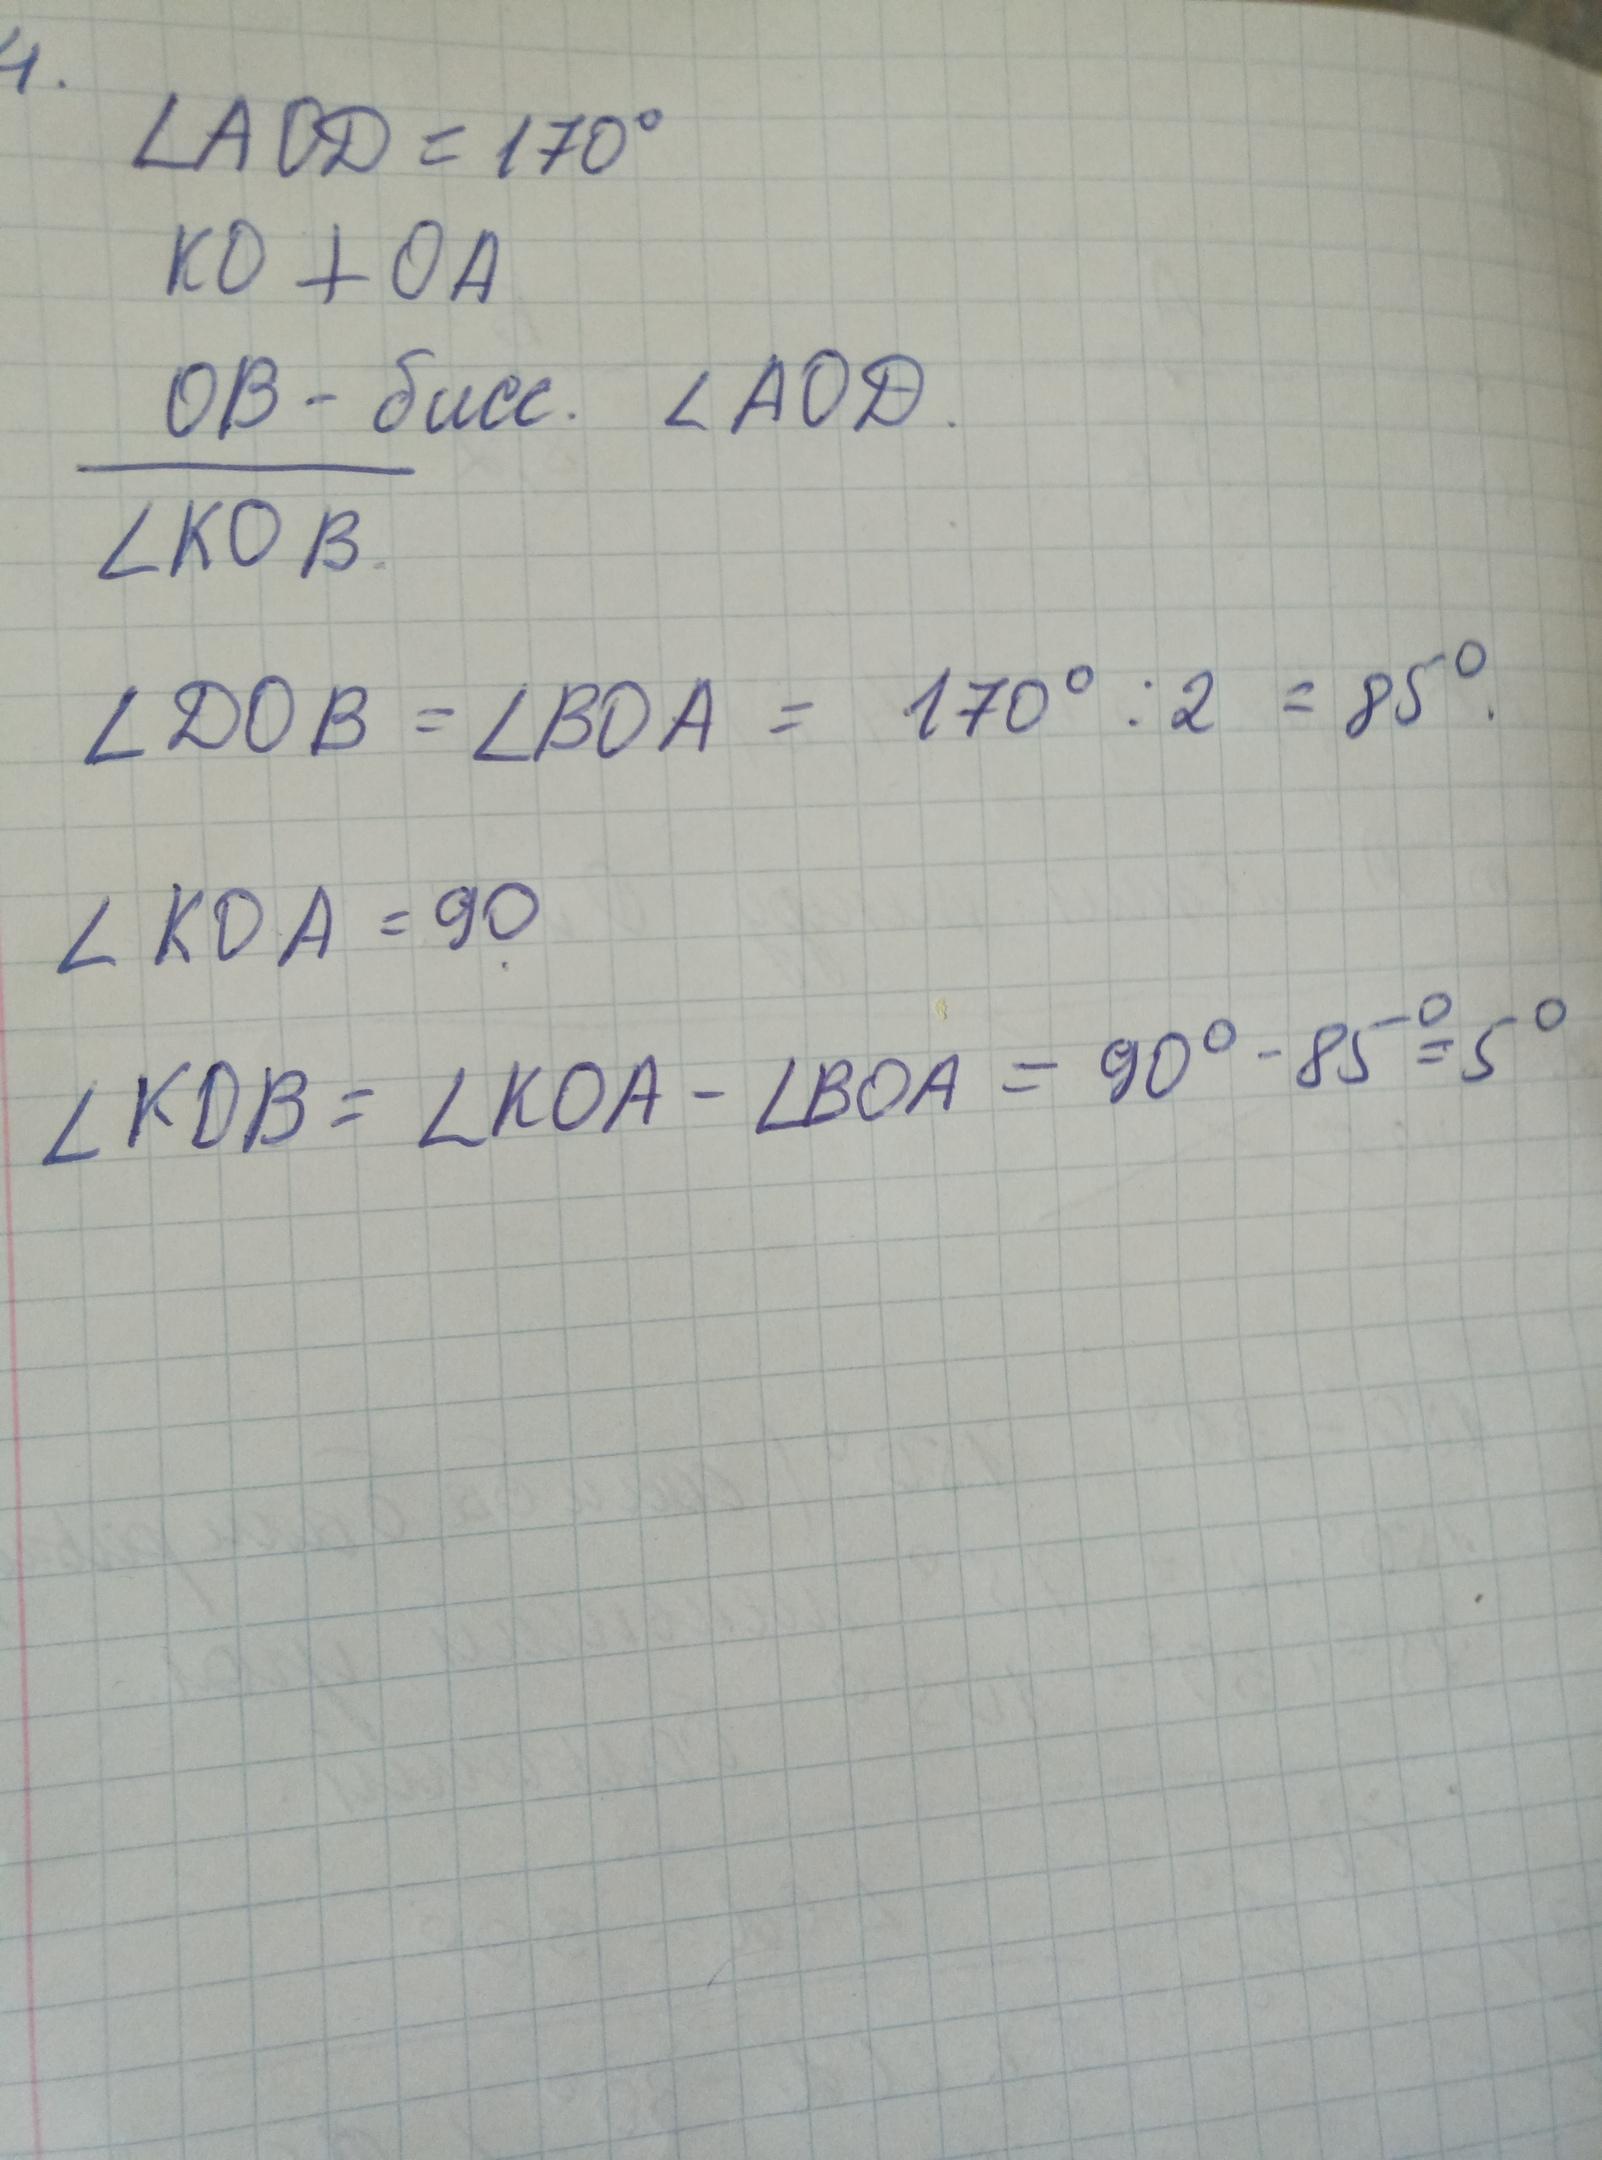 4.
∠AOD = 170°
KO ⊥ OA
OB - бисс. ∠AOD.
∠KOB.
∠DOB = ∠BOA = 170° : 2 = 85°.
∠KOA = 90
∠KOB = ∠KOA - ∠BOA = 90° - 85° = 5°